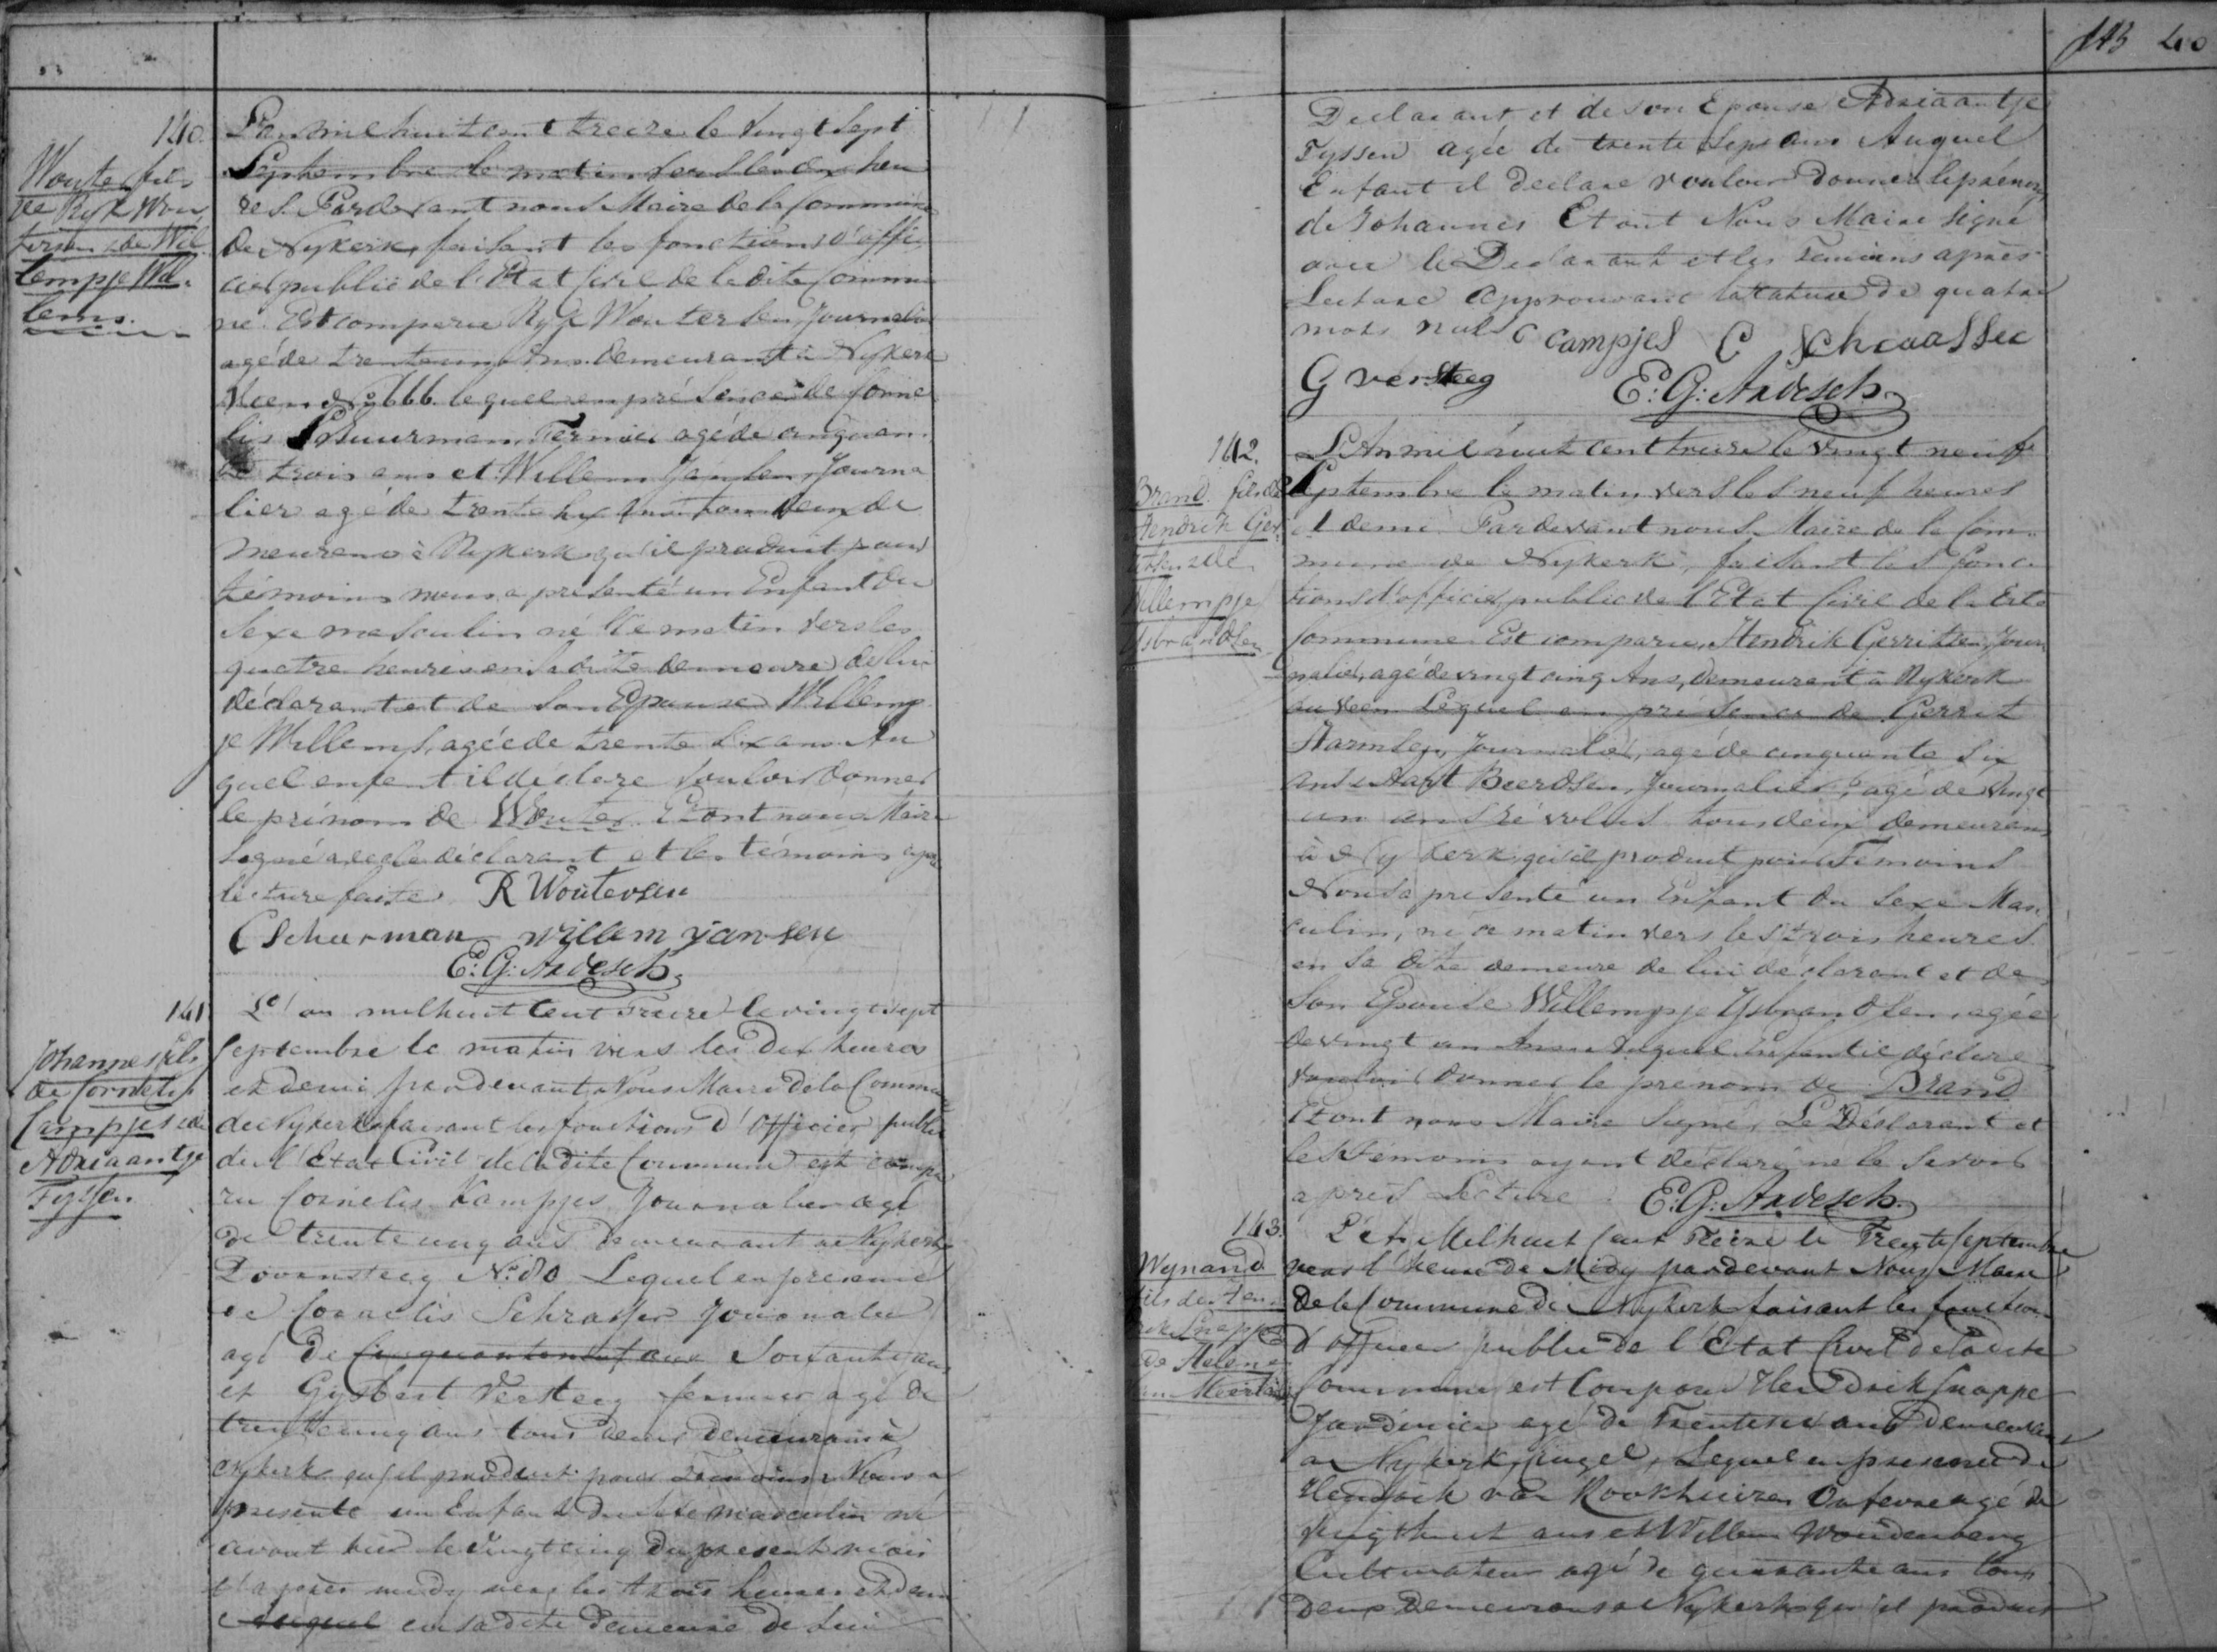 140.
Wouter fils
de Ryk Wou
tersen & de Wil
lempje Wil
lems.
L'an mil huit cent treize le vingt sept
Septembre le matin vers les dix heu
res. Pardevant nous Maire de la commune
de Nykerk, faisant les fonctions d'offi
cier public de l'Etat Civil de la dite Commu
ne. Est comparu Ryk Woutersen, Journalier
agé de trente cinq Ans demeurant à Nykerk
Veen No. 666. lequel en présence de Corne
lis Schuurman, Fermier agé de cinquan
te trois ans et Willem Jansen, Journa
lier agé de trente huit tous deux de
meurens à Nykerk qu'il produit pour
témoins nous a présenté un Enfant du
Sexe masculin né ce matin vers les
quatre heures en sa dite demeure de lui
déclarant et de son Epouse Willemp
je Willems, agée de trente six ans. Au
quel enfant il déclare vouloir donner
le prénom de Wouter. Et ont nous Maire
signé avec le déclarant et les témoins après
lecture faite R Woutersen
C Schurman Willem Jansen
E: G: Ardesch.
141
Johannes fils
de Cornelis
Campjes & de
Adriaantje
Tyssen.
L'an milhuit Cent Treize le vingt sept
Septembre le matin vers les dix heures
et demi pardevant Nous Maire de la Commune
de Nykerk faisant les fonctions d'Officier public
de l'Etat Civil de la dite Commune est compa
ru Cornelis Kampjes Journalier agé
de trente cinq ans demeurant a Nykerk
No. 80 Lequel en presence
de Cornelis Schrasser Journalier
agé de Cinquante neuf ans Soixante ans
et Gysbert Versteeg fermier agé de
trente cinq ans tous deux demeurans à
Nykerk qu'il produit pour temoins Nous a
presenté un Enfant du Sexe masculin né
avant hier le vingt cinq du present mois
l'après midy vers les trois heures et demi
Auquel en sa dite demeure de Lui
113 40
Declarant et de son Epouse Adriaantje
Tyssen agée de trente Sept ans Auquel
Enfant il Declare vouloir donner le prénom
de Johannes Et ont Nous Maire signé
avec le Declarant et les Temoins après
Lecture Approuvant la rature de quatre
mots nuls C Campjes C Schraasser
G versteeg E: G: Ardesch.
142.
Brand. fils de
Hendrik Ger
ritsen & de
Willempje
Ysbrandsen
L'An mil huit cent treize le vingt neuf
Septembre le matin vers les neuf heures
et demi Pardevant nous Maire de la Com
mune de Nykerk, faisant les fonc
tions d'officier public de l'Etat Civil de la dite
Commune Est comparu, Hendrik Gerritsen, Jour
nalier, agé de vingt cinq Ans, demeurant à Nykerk
au Veen Lequel en présence de Gerrit
Harmsen, Journalier, agé de cinquante six
ans & Aart Beerdsen, Journalier, agé de vingt
un ans révolus tous deux demeurans
à Nykerk, qu'il produit pour Témoins
Nous a presenté un Enfant du Sexe Mas
culin, né ce matin vers les trois heures
en sa dite demeure de lui déclarant et de
Son Epouse Willempje Ysbrandsen, agée
de vingt un Ans. Auquel Enfant il déclare
vouloir donner le prénom de Brand
Et ont nous Maire Signé, Le Déclarant et
les Témoins ayant déclaré ne le savoir
après Lecture E: G: Ardesch.
143.
Wynand
fils de Hen
drik Snappe
& de Helena
van Meerten
L'An Milhuit Cent Treize le Trente Septembre
vers l'heure de Midy pardevant Nous Maire
de la Commune de Nykerk faisant les fonctions
d'officier public de l'Etat Civil de la dite
Commune est Comparu Hendrik Snappe
Jardinier agé de Trente six ans demeurant
a Nykerk, Singel, Lequel en presence de
Hendrik van Rookhuizen Orfevre agé de
Vingthuit ans et Willem Woudenberg
Cultivateur agé de quarante ans tous
deux demeurans a Nykerk qu'il produit